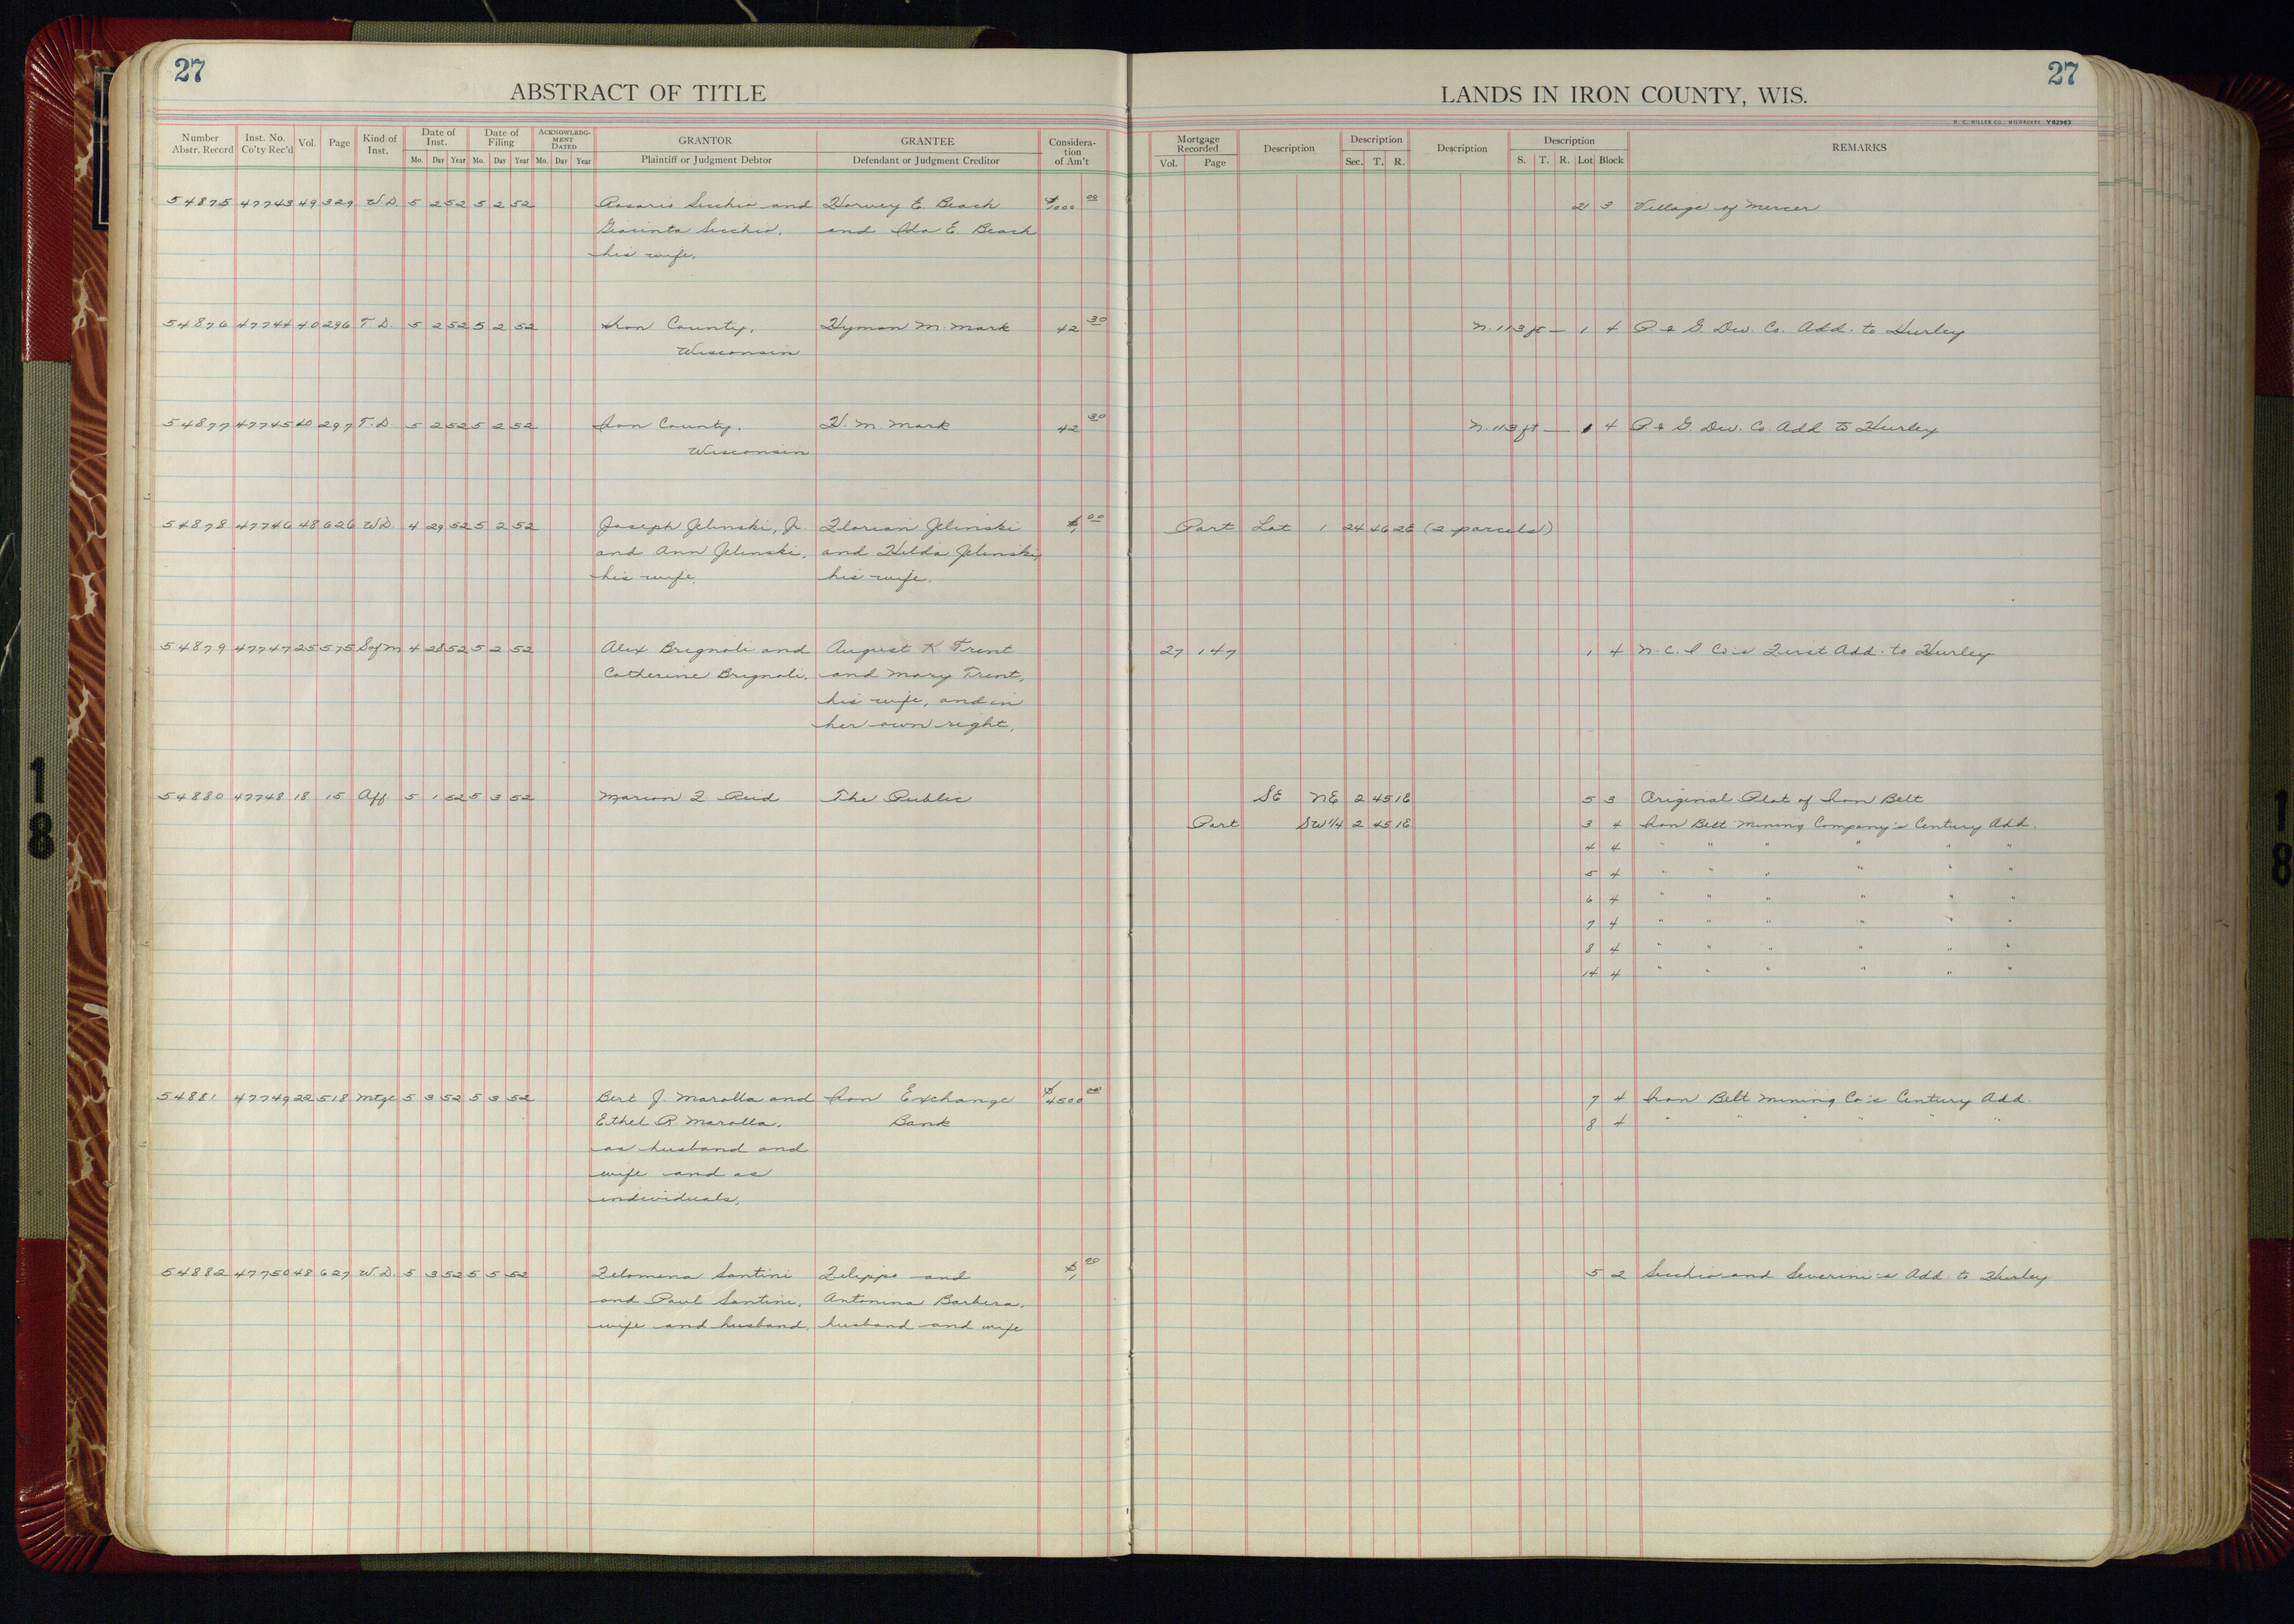 27
ABSTRACT OF TITLE
LANDS IN IRON COUNTY, WIS.
27
H. C. MILLER CO., MILWAUKEE Y62963
Number Abstr. Record Inst. No. Co'ty Rec'd Vol. Page Kind of Inst. Date of Inst. Mo. Day Year Date of Filing Mo. Day Year ACKNOWLEDGMENT DATED Mo. Day Year GRANTOR Plaintiff or Judgment Debtor GRANTEE Defendant or Judgment Creditor Consideration of Am't Mortgage Recorded Vol. Page Description Description Sec. T. R. Description Description S. T. R. Lot Block REMARKS
54875 47743 49 329 W.D. 5 2 52 5 2 52 Rosario Secchio and Harvey E. Beach $1000 00 21 3 Village of Mercer
Giacinta Secchio, and Ida E. Beach
his wife.
54876 47744 40 296 T.D. 5 2 52 5 2 52 Iron County, Hyman M. Mark 42 30 N. 113 ft — 1 4 P. & G. Dev. Co. Add. to Hurley
Wisconsin
54877 47745 40 297 T.D. 5 2 52 5 2 52 Iron County, H. M. Mark 42 30 N. 113 ft — 1 4 P. & G. Dev. Co. Add to Hurley
Wisconsin
54878 47746 48 626 W.D. 4 29 52 5 2 52 Joseph Jelinski, Jr. Florian Jelinski $1 00 Part Lot 1 24 46 2E (2 parcels)
and Ann Jelinski, and Hilda Jelinski,
his wife. his wife.
54879 47747 25 575 S of M 4 28 52 5 2 52 Alex Brignoli and August K. Trent 27 147 1 4 N. C. I Co's First Add. to Hurley
Catherine Brignoli, and Mary Trent,
his wife, and in
her own right,
54880 47748 18 15 Aff. 5 1 52 5 3 52 Marion F Reid The Public SE NE 2 45 1E 5 3 Original Plat of Iron Belt
Part SW 1/4 2 45 1E 3 4 Iron Belt Mining Company's Century Add.
4 4 " " " " " "
5 4 " " " " " "
6 4 " " " " " "
7 4 " " " " " "
8 4 " " " " " "
14 4 " " " " " "
54881 47749 22 518 Mtge 5 3 52 5 3 52 Bert J. Marolla and Iron Exchange $4500 00 7 4 Iron Belt Mining Co's Century Add.
Ethel R. Marolla, Bank 8 4 " " " " " "
as husband and
wife and as
individuals,
54882 47750 48 627 W.D. 5 3 52 5 5 52 Filomena Santini Filippo and $1 00 5 2 Secchio and Severini's Add. to Hurley
and Paul Santini, Antonina Barbera,
wife and husband. husband and wife
18
18